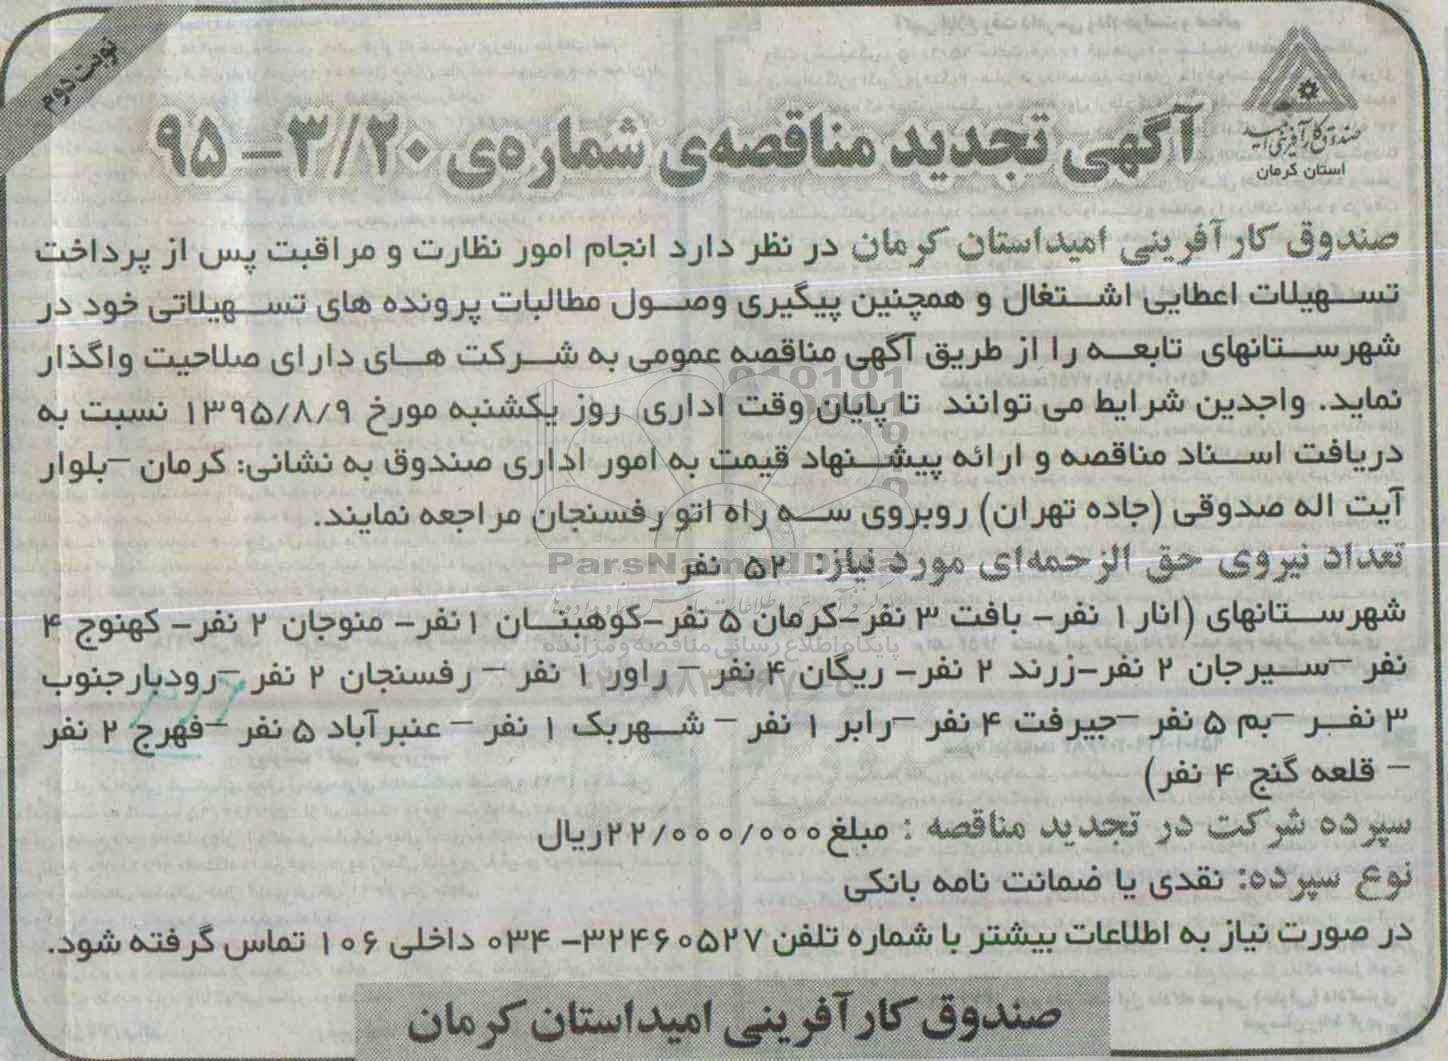 نوبت دوم
صندوق کارآفرینی امید
استان کرمان
آگهی تجدید مناقصه‌ی شماره‌ی ۳/۲۰ – ۹۵
صندوق کارآفرینی امیداستان کرمان در نظر دارد انجام امور نظارت و مراقبت پس از پرداخت
تسهیلات اعطایی اشتغال و همچنین پیگیری وصول مطالبات پرونده های تسهیلاتی خود در
شهرستانهای تابعه را از طریق آگهی مناقصه عمومی به شرکت های دارای صلاحیت واگذار
نماید. واجدین شرایط می توانند تا پایان وقت اداری روز یکشنبه مورخ ۱۳۹۵/۸/۹ نسبت به
دریافت اسناد مناقصه و ارائه پیشنهاد قیمت به امور اداری صندوق به نشانی: کرمان –بلوار
آیت اله صدوقی (جاده تهران) روبروی سه راه اتو رفسنجان مراجعه نمایند.
تعداد نیروی حق الزحمه‌ای مورد نیاز: ۵۲ نفر
شهرستانهای (انار۱ نفر– بافت ۳ نفر–کرمان ۵ نفر–کوهبنان ۱نفر– منوجان ۲ نفر– کهنوج ۴
نفر –سیرجان ۲ نفر–زرند ۲ نفر– ریگان ۴ نفر– راور ۱ نفر – رفسنجان ۲ نفر –رودبارجنوب
۳ نفر –بم ۵ نفر –جیرفت ۴ نفر –رابر ۱ نفر – شهربک ۱ نفر – عنبرآباد ۵ نفر –فهرج ۲ نفر
– قلعه گنج ۴ نفر)
سپرده شرکت در تجدید مناقصه : مبلغ۲۲/۰۰۰/۰۰۰ریال
نوع سپرده: نقدی یا ضمانت نامه بانکی
در صورت نیاز به اطلاعات بیشتر با شماره تلفن ۳۲۴۶۰۵۲۷– ۰۳۴ داخلی ۱۰۶ تماس گرفته شود.
صندوق کارآفرینی امیداستان کرمان
ParsNamadData
پایگاه اطلاع رسانی مناقصه و مزایده